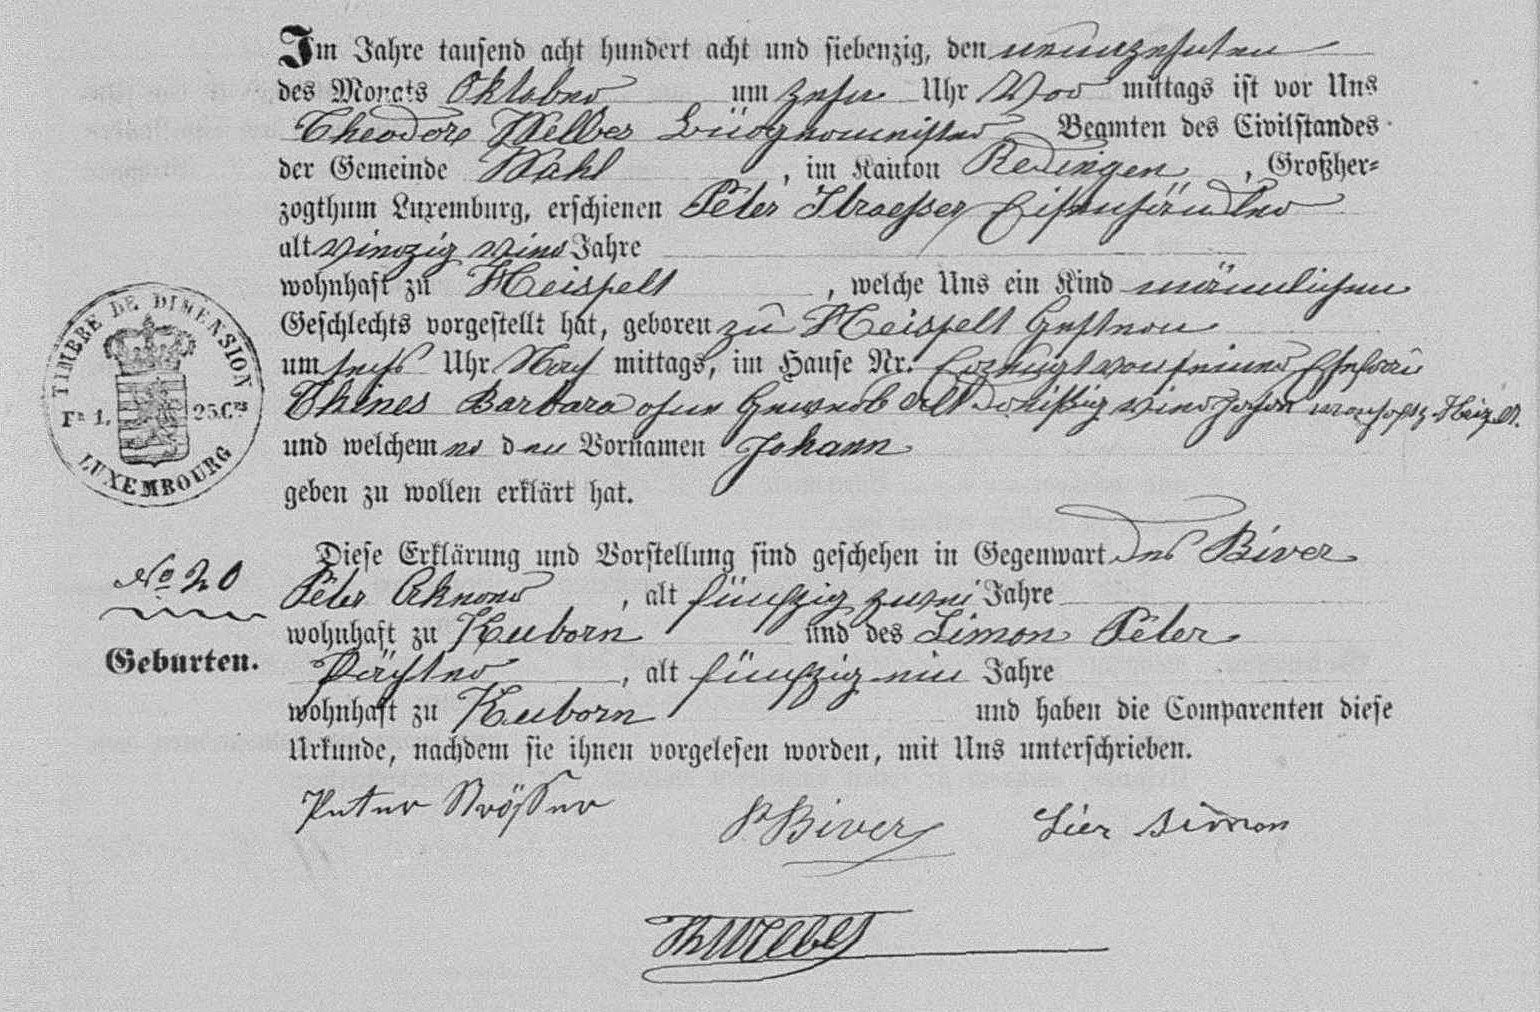 Im Jahre tausend acht hundert acht und siebenzig, den neunzehnten
des Monats Oktober um zehn Uhr Vor mittags ist vor Uns
Theodore Welbes Bürgermeister Beamten des Civilstandes
der Gemeinde Wahl, im Kanton Redingen, Großher=
zogthum Luxemburg, erschienen Peter Straesser
alt vierzig vier Jahre
wohnhaft zu Heispelt, welche Uns ein Kind männlichen
Geschlechts vorgestellt hat, geboren zu Heispelt gestern
um sechs Uhr Nach mittags, im Hause Nr. erzeugt von seiner Ehefrau
Thines Barbara ohne Gewerb alt dreißig vier Jahren wohnhaft z. Heispelt.
und welchem er den Vornamen Johann
geben zu wollen erklärt hat.
TIMBRE DE DIMENSION
Fr 1. 25 Cmes
LUXEMBOURG
No 20
Geburten.
Diese Erklärung und Vorstellung sind geschehen in Gegenwart des Biver
Peter Akerer, alt fünfzig zwei Jahre
wohnhaft zu Kuborn und des Simon Peter
, alt fünfzig ein Jahre
wohnhaft zu Kuborn und haben die Comparenten diese
Urkunde, nachdem sie ihnen vorgelesen worden, mit Uns unterschrieben.
Peter Strösser P Biver Simon
Th Welbes